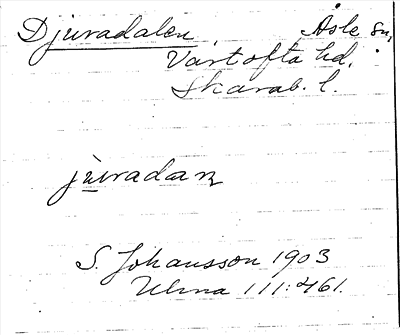 Djuradalen, Åsle sn,
Vartofta hd.
Skarab. l.
juradaɴ
S. Johansson 1903
Ulma 111:461.